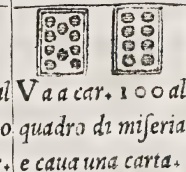 al V a a car. 1 0 0 al
o quadro di miſeria
r. e caua una carta.